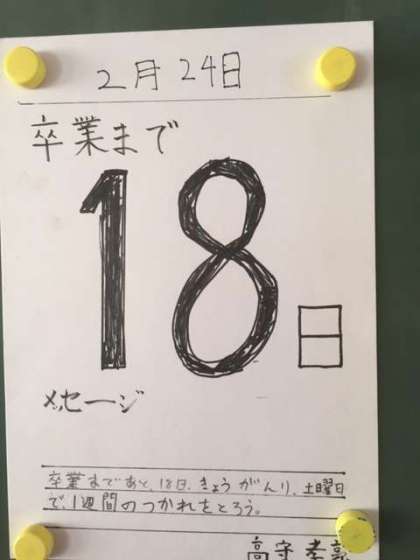 2月24日
卒業まで
18日
メッセージ
卒業まであと、18日、きょうがんり、土曜日
で、1週間のつかれをとろう。
高守孝